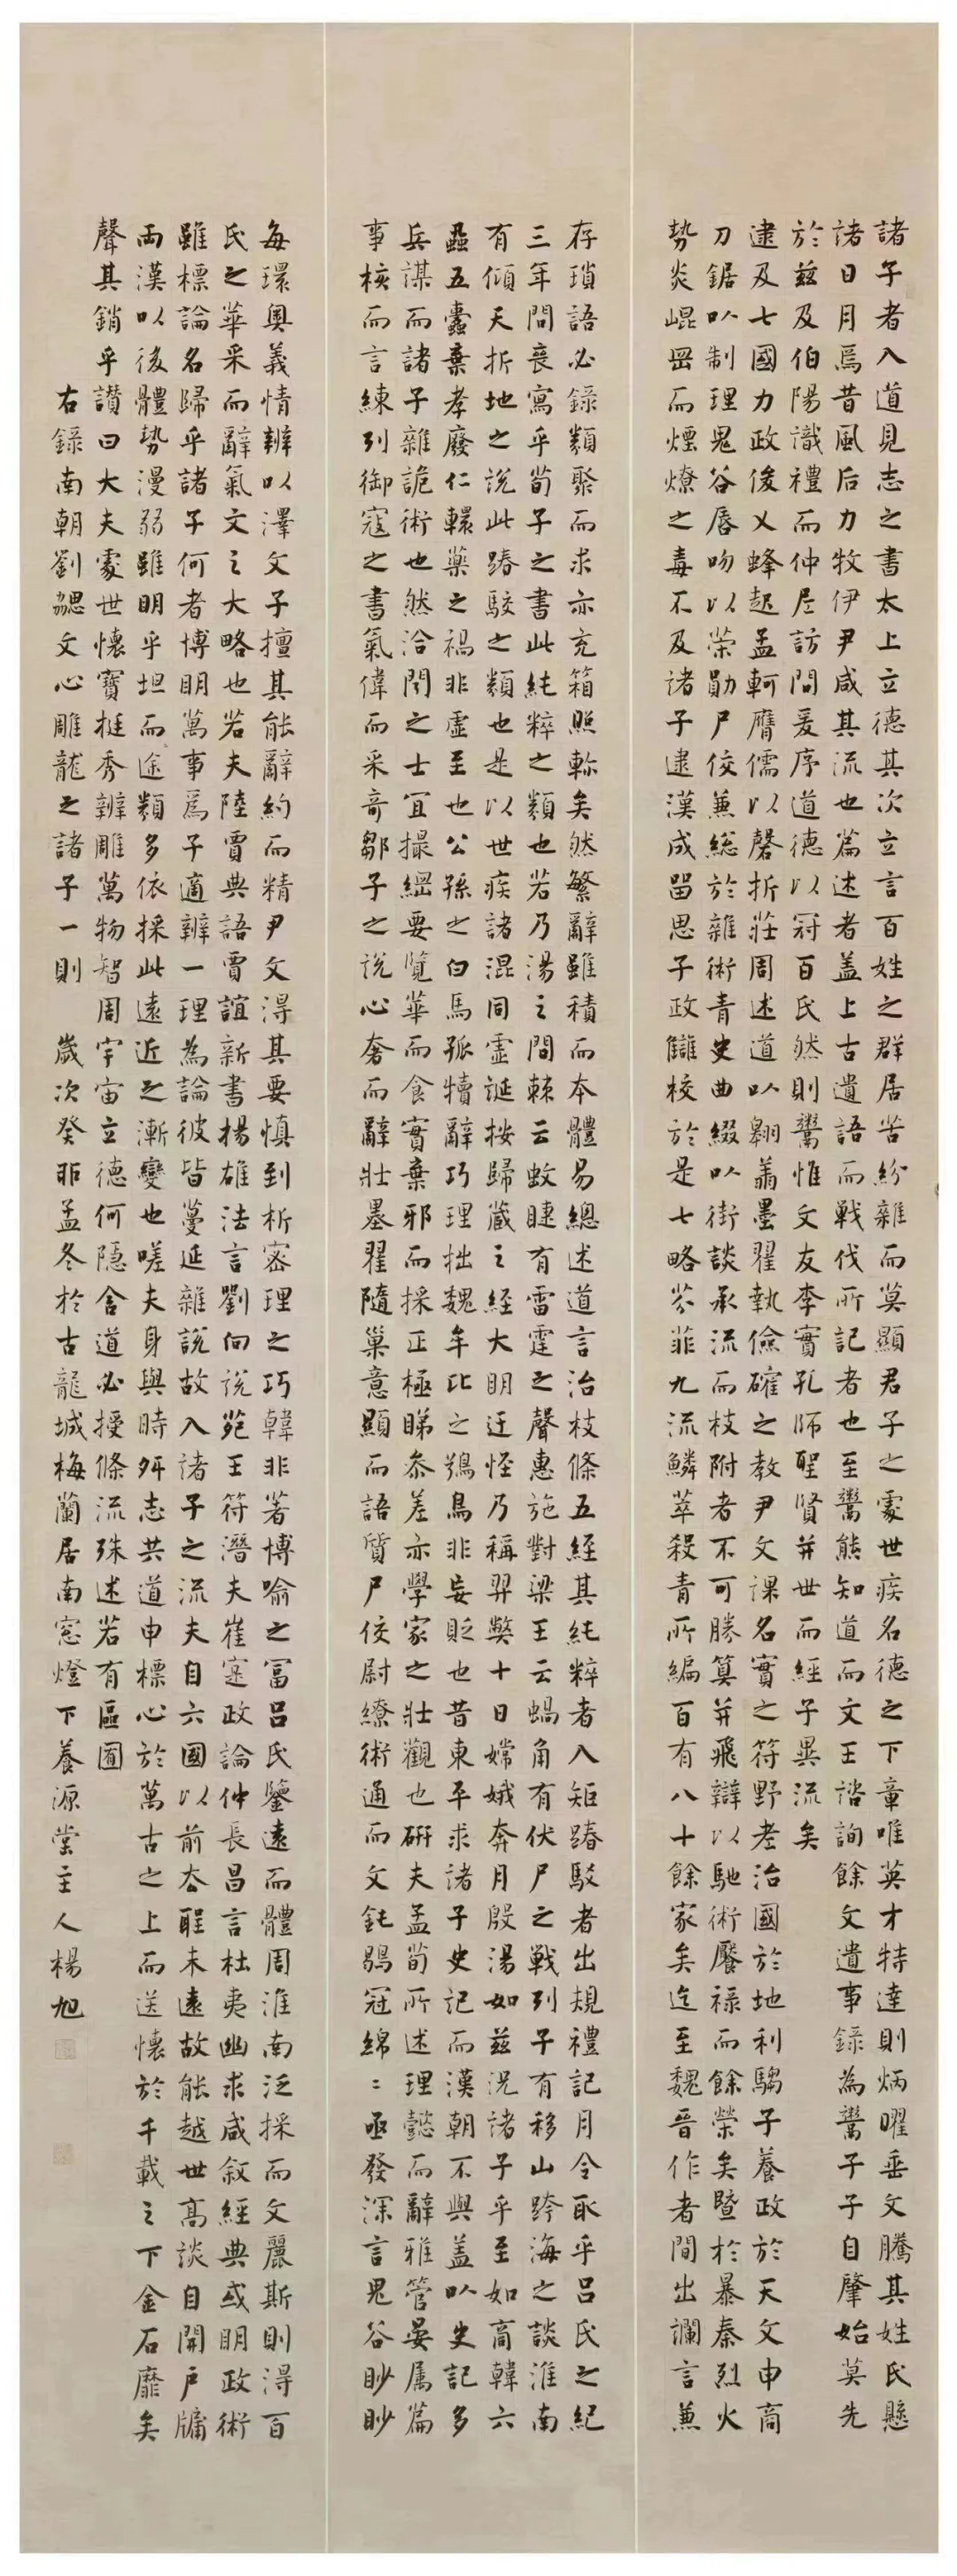 諸子者入道見志之書太上立德其次立言百姓之群居苦紛雜而莫顯君子之處世疾名德之下章唯英才特達則炳曜垂文騰其姓氏懸
諸日月焉昔風后力牧伊尹咸其流也篇述者盖上古遺語而戰伐所記者也至鬻熊知道而文王諮詢餘文遺事錄為鬻子子自肇始莫先
於茲及伯陽識禮而仲尼訪問爰序道德以冠百氏然則鬻惟文友李實孔師聖賢并世而經子異流矣
逮及七國力政俊乂蜂起孟軻膺儒以磬折莊周述道以翱翔墨翟執儉確之教尹文課名實之符野老治國於地利騶子養政於天文申商
刀鋸以制理鬼谷唇吻以榮勛尸佼兼総於雜術青史曲綴以街談承流而枝附者不可勝算并飛辯以馳術饜祿而餘榮矣暨於暴秦烈火
勢炎崐岡而煙燎之毒不及諸子逮漢成留思子政讎校於是七略芬菲九流鱗萃殺青所編百有八十餘家矣迄至魏晉作者間出讕言兼
存瑣語必錄類聚而求亦充箱照軫矣然繁辭雖積而本體易總述道言治枝條五經其純粹者入矩踳駁者出規禮記月令取乎呂氏之紀
三年問喪寫乎荀子之書此純粹之類也若乃湯之問棘云蚊睫有雷霆之聲惠施對梁王云蝸角有伏尸之戰列子有移山跨海之談淮南
有傾天折地之說此踳駁之類也是以世疾諸混同虛誕按歸藏之經大明迂怪乃稱羿斃十日嫦娥奔月殷湯如茲況諸子乎至如商韓六
蝨五蠹棄孝廢仁轘藥之禍非虛至也公孫之白馬孤犢辭巧理拙魏牟比之鴞鳥非妄貶也昔東平求諸子史記而漢朝不與盖以史記多
兵謀而諸子雜詭術也然洽聞之士宜撮綱要覽華而食實棄邪而採正極睇参差亦學家之壯觀也研夫孟荀所述理懿而辭雅管晏属篇
事核而言練列御寇之書氣偉而采奇鄒子之說心奢而辭壯墨翟隨巢意顯而語質尸佼尉繚術通而文鈍鶡冠綿〻亟發深言鬼谷眇眇
每環奧義情辨以澤文子擅其能辭約而精尹文得其要慎到析密理之巧韓非著博喻之富呂氏鑒遠而體周淮南泛採而文麗斯則得百
氏之華采而辭氣文之大略也若夫陸賈典語賈誼新書揚雄法言劉向說苑王符潛夫崔寔政論仲長昌言杜夷幽求咸叙經典或明政術
雖標論名歸乎諸子何者博明萬事爲子適辨一理為論彼皆蔓延雜說故入諸子之流夫自六國以前去聖未遠故能越世高談自開戶牖
兩漢以後體勢漫弱雖明乎坦而途類多依採此遠近之漸變也嗟夫身與時舛志共道申標心於萬古之上而送懷於千載之下金石靡矣
聲其銷乎讚曰大夫處世懷寶挺秀辨雕萬物智周宇宙立德何隱含道必授條流殊述若有區囿
右錄南朝劉勰文心雕龍之諸子一則　歲次癸卯孟冬於古龍城梅蘭居南窓燈下養源堂主人楊旭